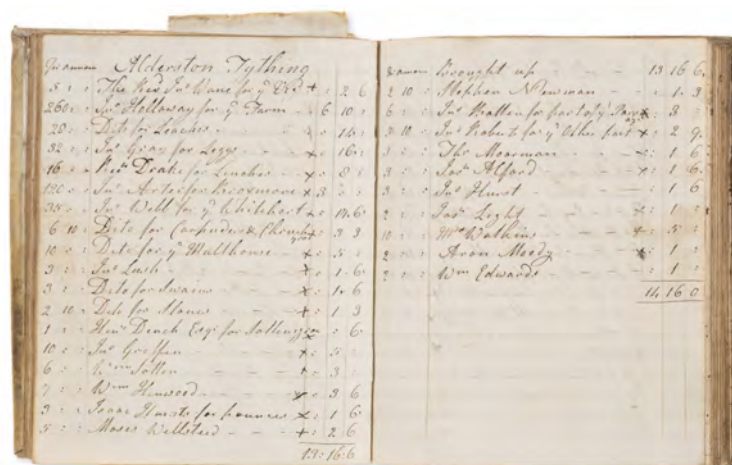 Alderston Tything
5 : : The Revd Jno Wane for ye + : 2 6
260 : : Jno Holloway for ye Farm - 6 10 :
20 : : Dito for Loaches - 10 :
32 : : Jno Gray for Leggs - × : 16 :
16 : : Drake for Lunches - × : 8 :
120 : : Jno for × 3 : :
35 : : Jno Well for ye Whitehart × : 17 6
6 10 : Dito for Carpenders & × : 3 3
10 : : Dito for ye Malthouse - × : 5 :
3 : : Jno Lush - × : 1 6
3 : : Dito for Swains - × : 1 6
2 10 : Dito for Stones - × : 1 3
1 : : Henry Esqr for × : : 6
10 : : Jno Griffen - × : 5 :
6 : : Wm - × : 3 :
7 : : Wm Hinwood - × : 3 6
3 : : Isaac for × : 1 6
5 : : Moses Willsteed - + : 2 6
13 : 16 : 6
Brought up - 13 16 6
2 10 : Stephen Newman - : 1 3
6 : : Jno Batten for part of ye × : 3 :
5 10 : Jno Roberts for ye Other part × : 2 9
3 : : Tho Moorman - × : 1 6
3 : : Jos Alford - × : 1 6
3 : : Jno Hurst - : 1 6
2 : : Light - × : 1 :
10 : : Watkins - × : 5 :
2 : : Aron Moody - × : 1 :
2 : : Wm Edwards - : 1 :
14 16 0